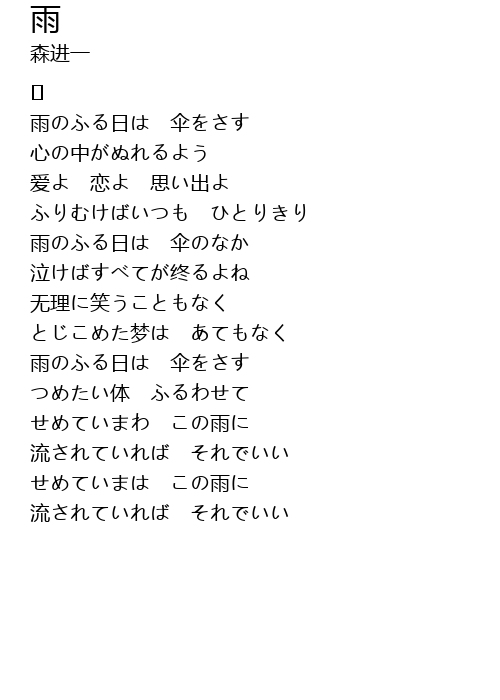 雨
森进一
雨のふる日は　伞をさす
心の中がぬれるよう
爱よ　恋よ　思い出よ
ふりむけばいつも　ひとりきり
雨のふる日は　伞のなか
泣けばすべてが终るよね
无理に笑うこともなく
とじこめた梦は　あてもなく
雨のふる日は　伞をさす
つめたい体　ふるわせて
せめていまわ　この雨に
流されていれば　それでいい
せめていまは　この雨に
流されていれば　それでいい